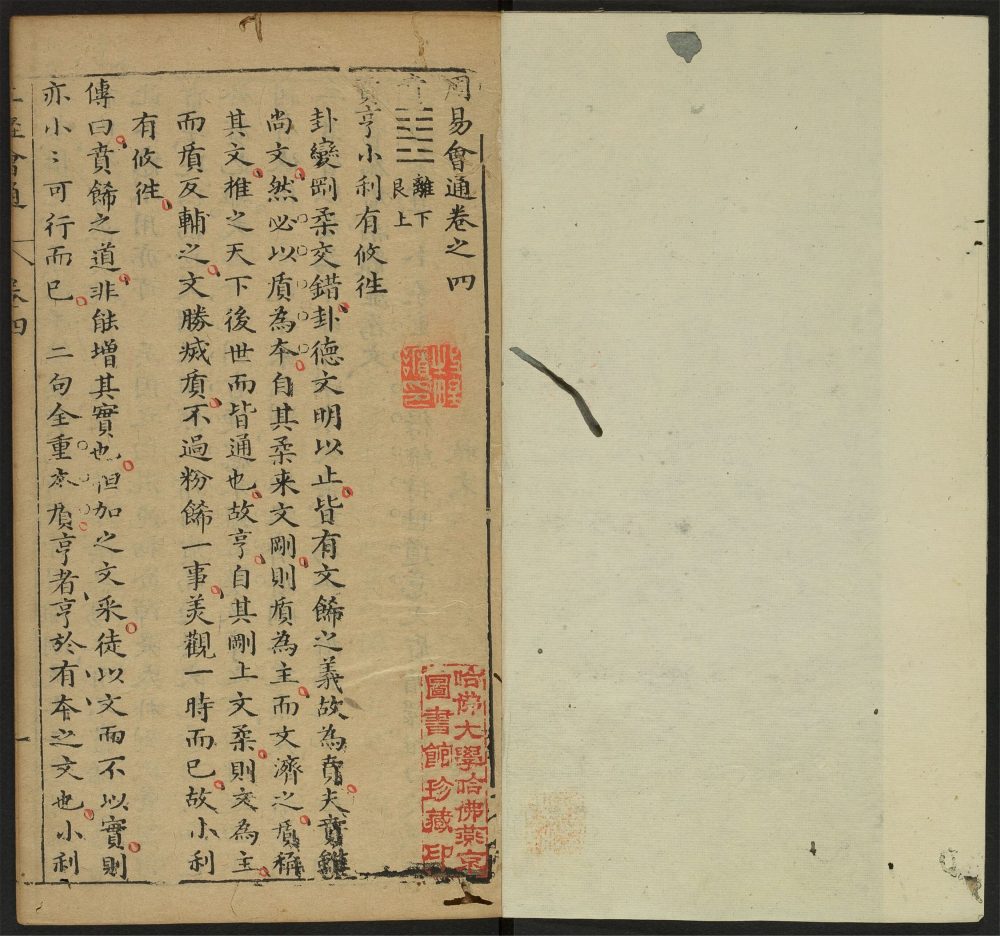 周易會通卷之四
賁 離下 艮上
賁亨小利有攸徃
卦變剛柔交錯卦德文明以止皆有文餙之義故為賁夫賁雖
尚文然必以質為本自其柔来文剛則質為主而文濟之質稱
其文推之天下後世而皆通也故亨自其剛上文柔則文為主
而質反輔之文勝烕質不過粉餙一事美觀一時而已故小利
有攸徃
傳曰賁餙之道非能增其實也但加之文采徒以文而不以實則
亦小〻可行而已 二句全重本質亨者亨於有本之文也小利
卷四
一
哈佛大學哈佛燕京
圖書館珍藏印